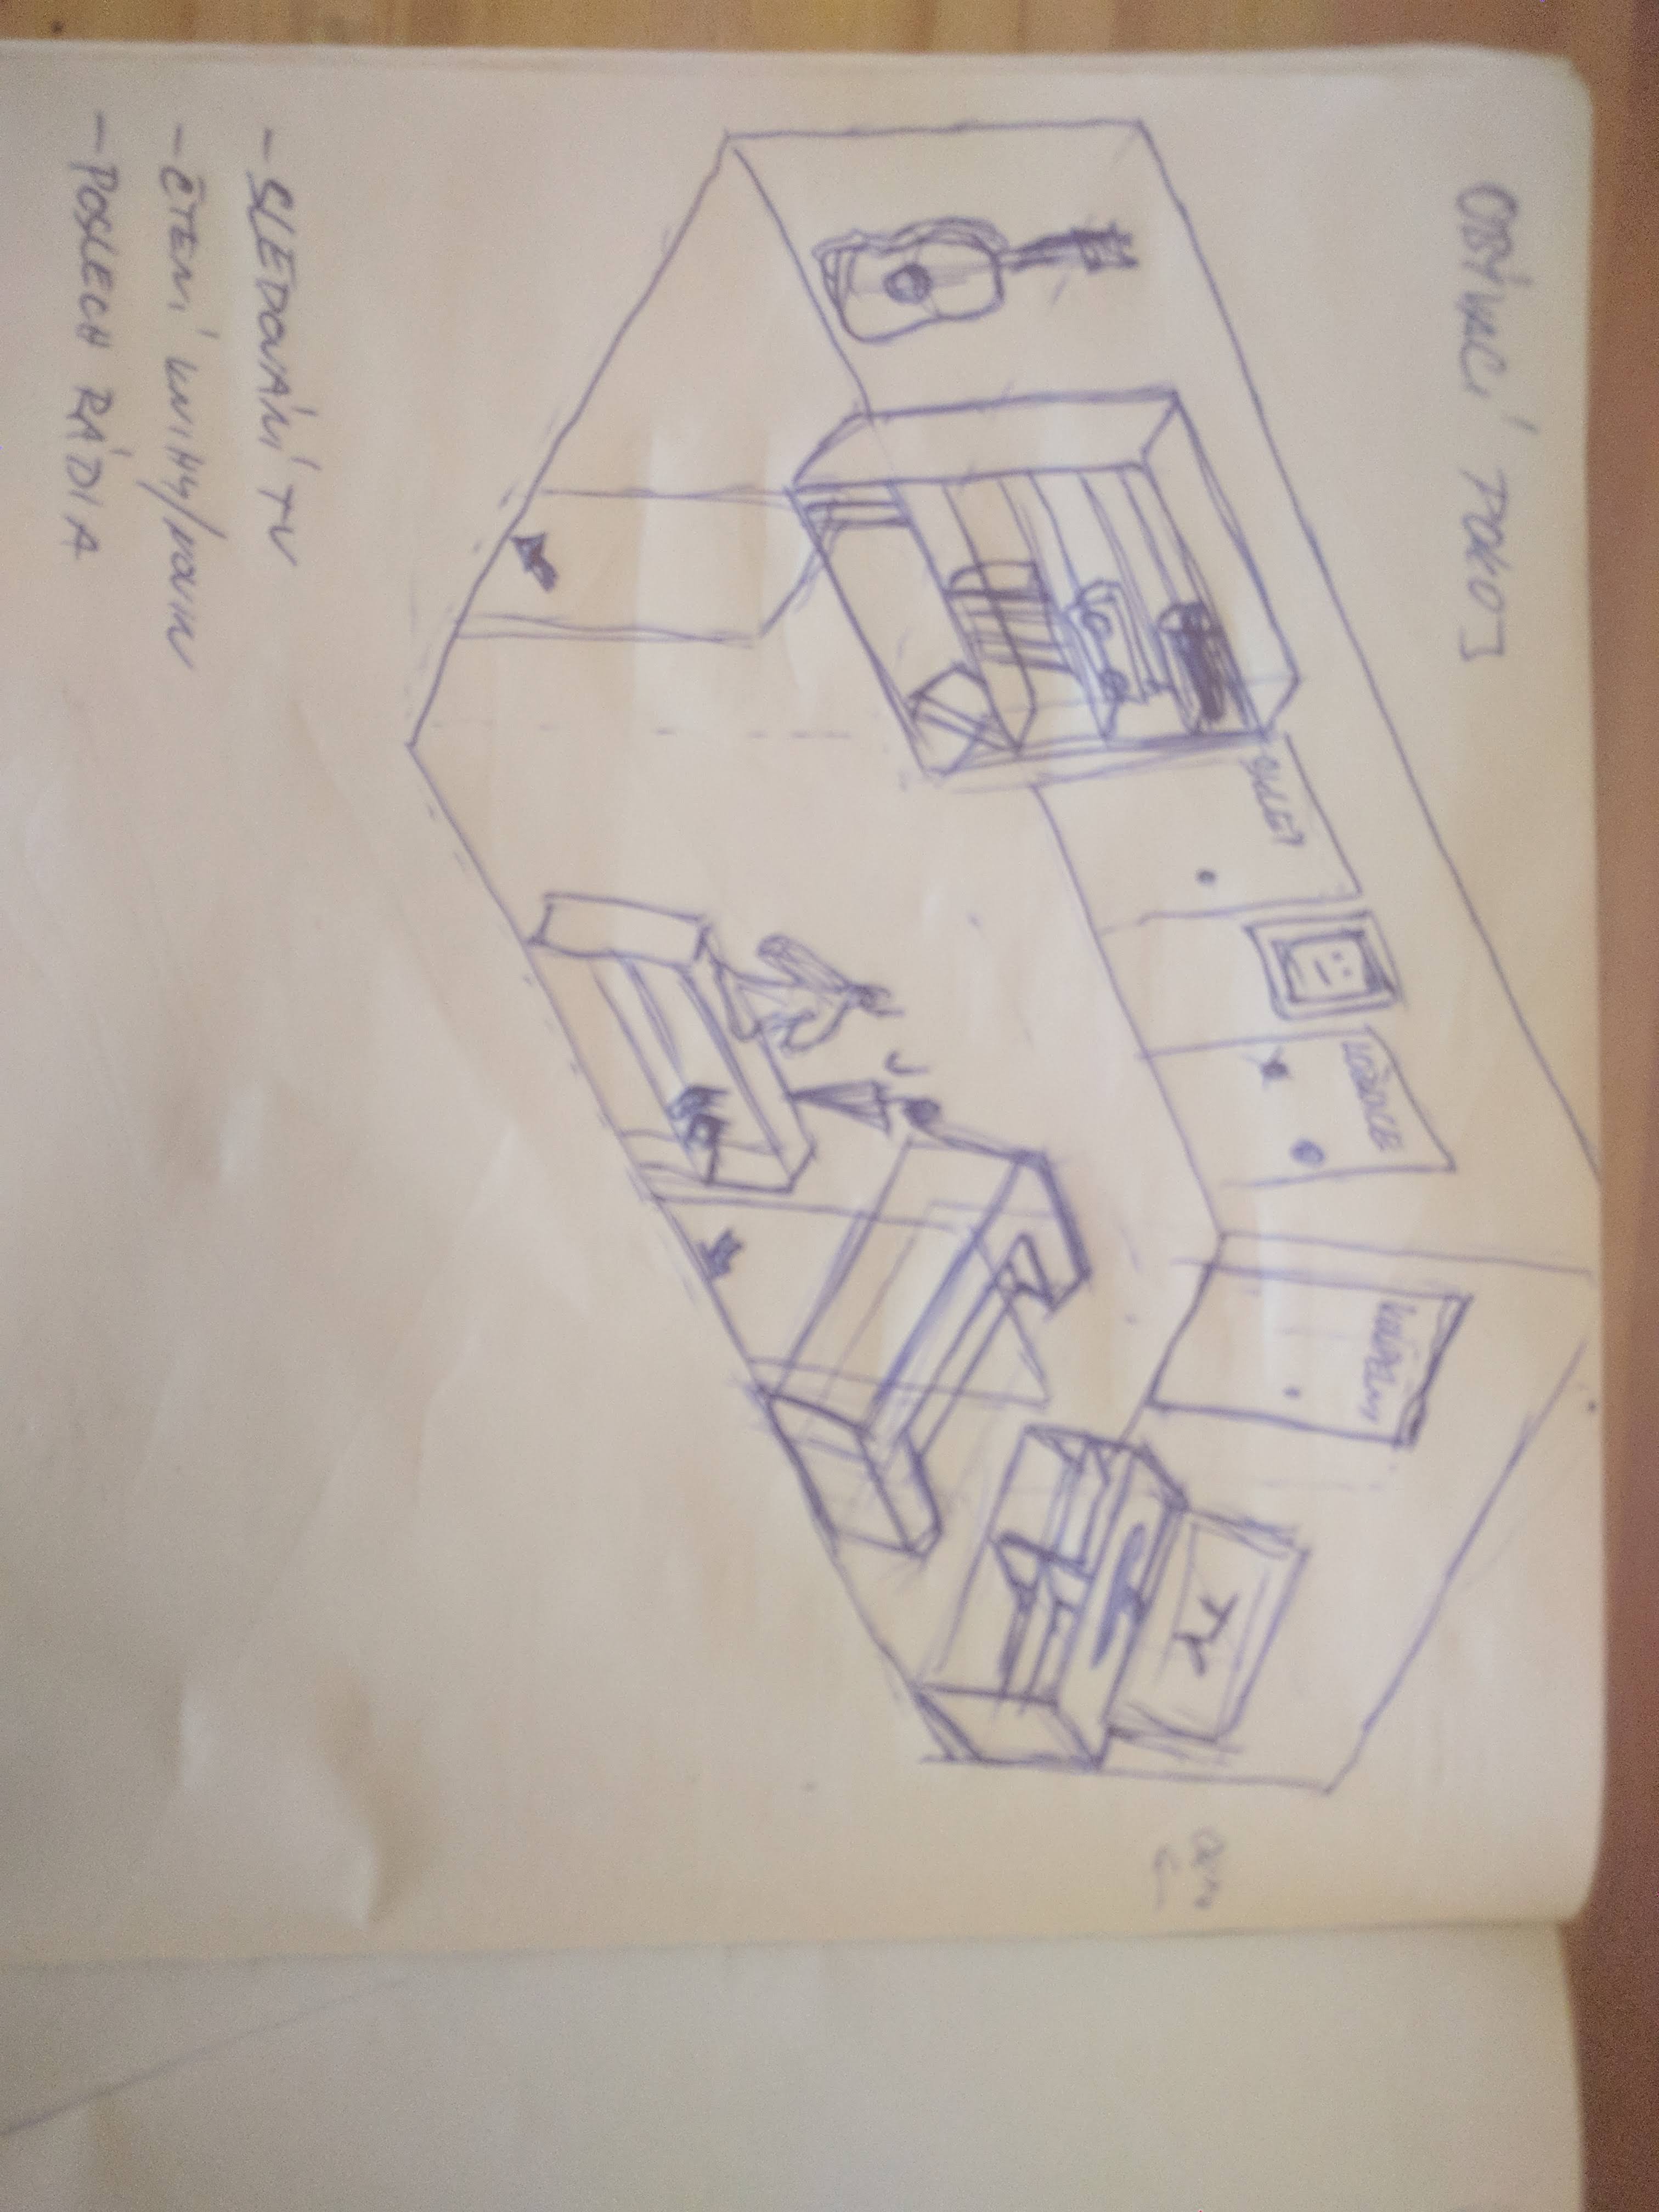 OBÝVACÍ POKOJ
LOŽNICE
KOUPELNY
TV
- SLEDOVÁNÍ TV
- ČTENÍ KNIHY/NOVIN
- POSLECH RÁDIA